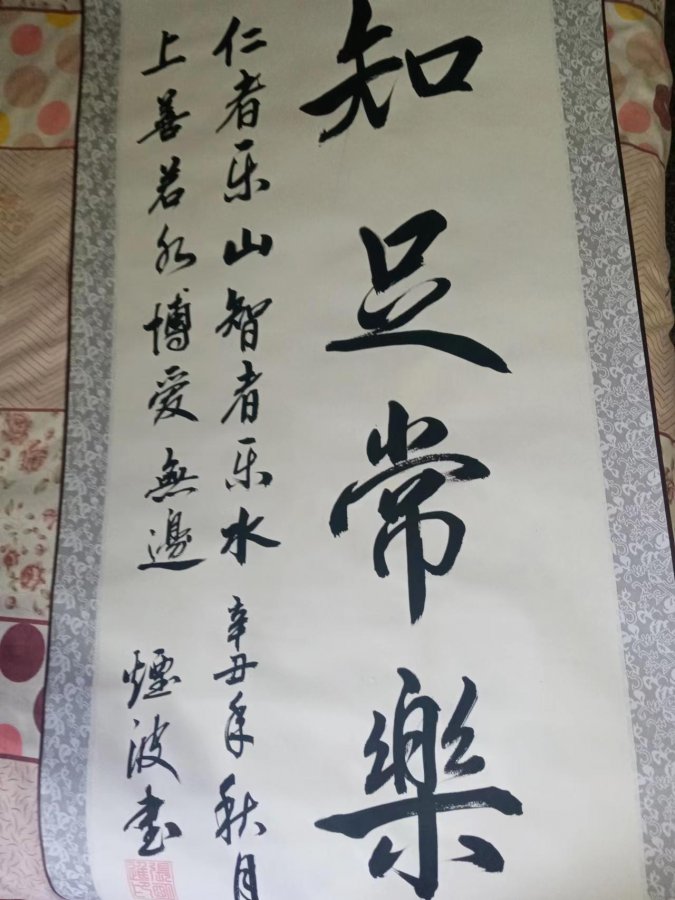 知足常樂
仁者乐山智者乐水 辛丑年秋月
上善若水博爱無邊 煙波书